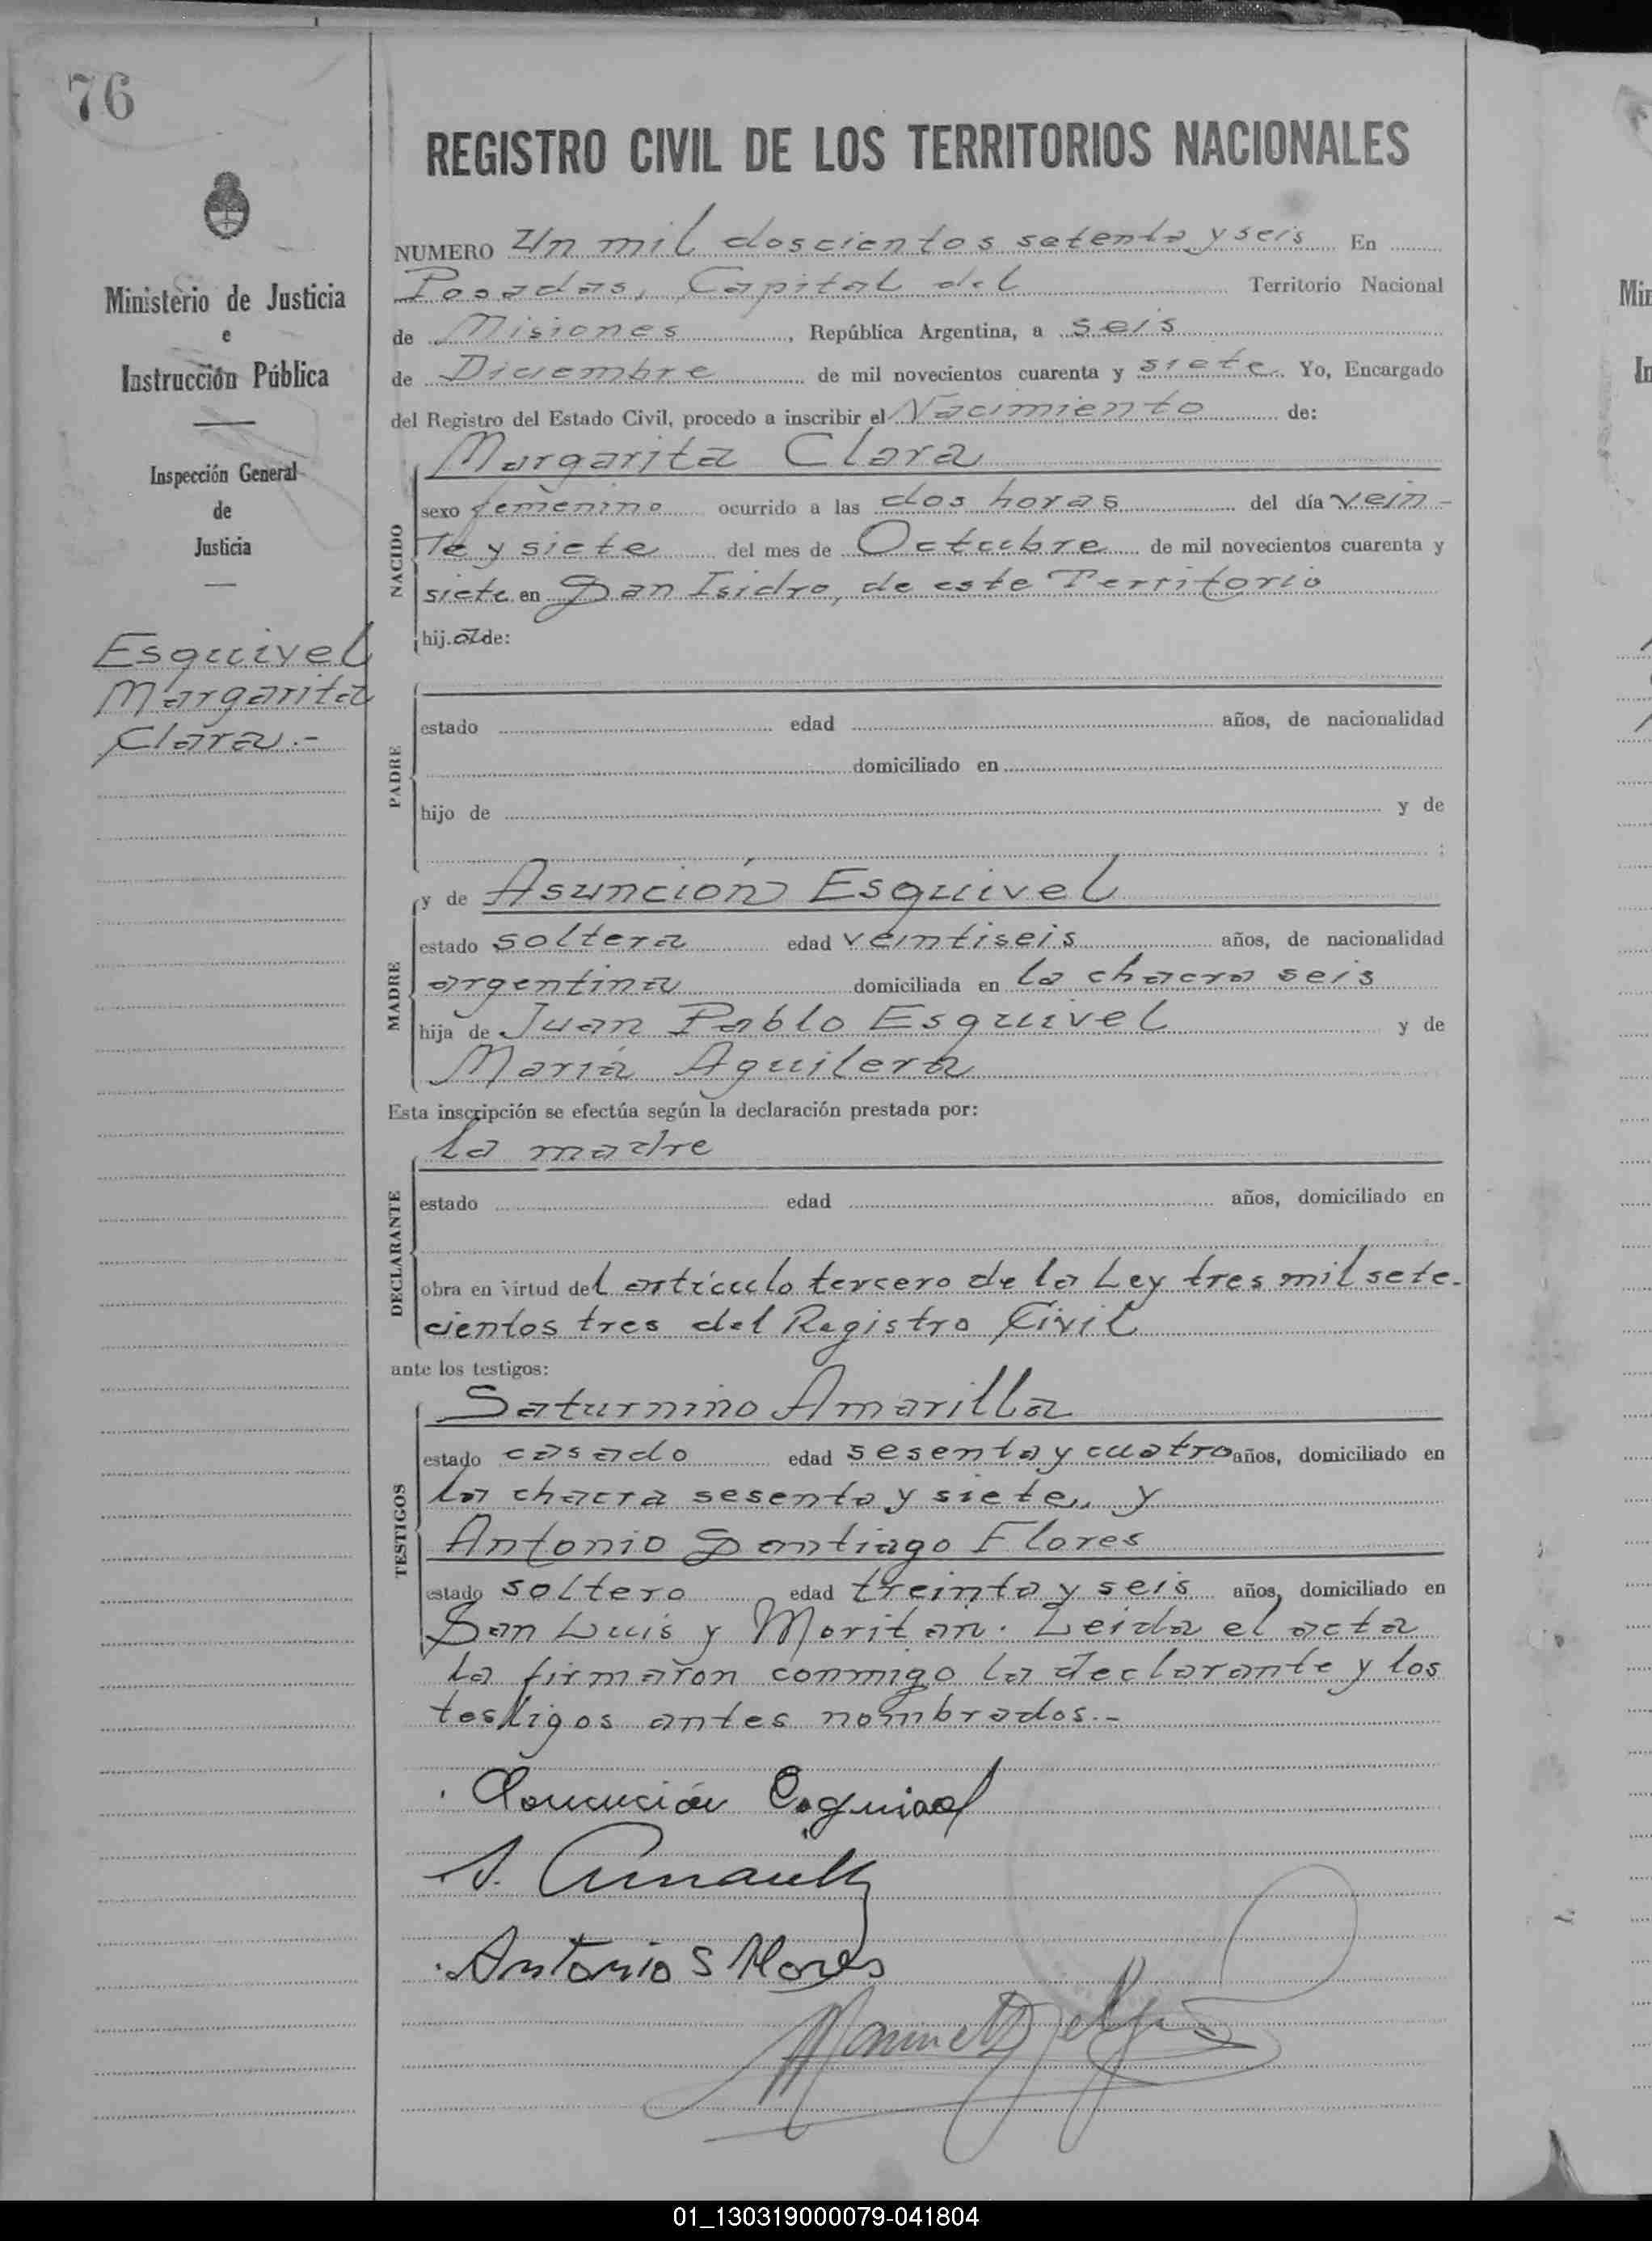 76
REGISTRO CIVIL DE LOS TERRITORIOS NACIONALES
Ministerio de Justicia
e
Instrucción Pública
Inspección General
de
Justicia
Esquivel
Margarita
Clara.-
NUMERO Un mil doscientos setenta y seis En
Posadas, Capital del Territorio Nacional
de Misiones, República Argentina, a seis
de Diciembre de mil novecientos cuarenta y siete Yo, Encargado
del Registro del Estado Civil, procedo a inscribir el Nacimiento de:
Margarita Clara
NACIDO
sexo femenino ocurrido a las dos horas del día vein-
te y siete del mes de Octubre de mil novecientos cuarenta y
siete en San Isidro, de este Territorio
hij.a de:
PADRE
estado edad años, de nacionalidad
domiciliado en
hijo de y de
;
y de Asunción Esquivel
MADRE
estado soltera edad veintiseis años, de nacionalidad
argentina domiciliada en la chacra seis
hija de Juan Pablo Esquivel y de
María Aguilera
Esta inscripción se efectúa según la declaración prestada por:
la madre
DECLARANTE
estado edad años, domiciliado en
obra en virtud del artículo tercero de la Ley tres mil sete-
cientos tres del Registro Civil
ante los testigos:
Saturnino Amarilla
TESTIGOS
estado casado edad sesenta y cuatro años, domiciliado en
la chacra sesenta y siete, y
Antonio Santiago Flores
estado soltero edad treinta y seis años, domiciliado en
San Luis y Moritán. Leida el acta
la firmaron conmigo la declarante y los
testigos antes nombrados.-
Antonio S Flores
01_130319000079-041804